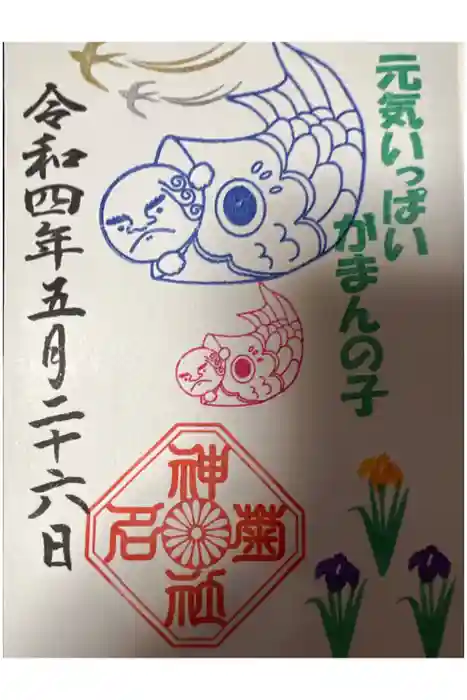 元気いっぱい
がまんの子
令和四年五月二十六日
菊名神社